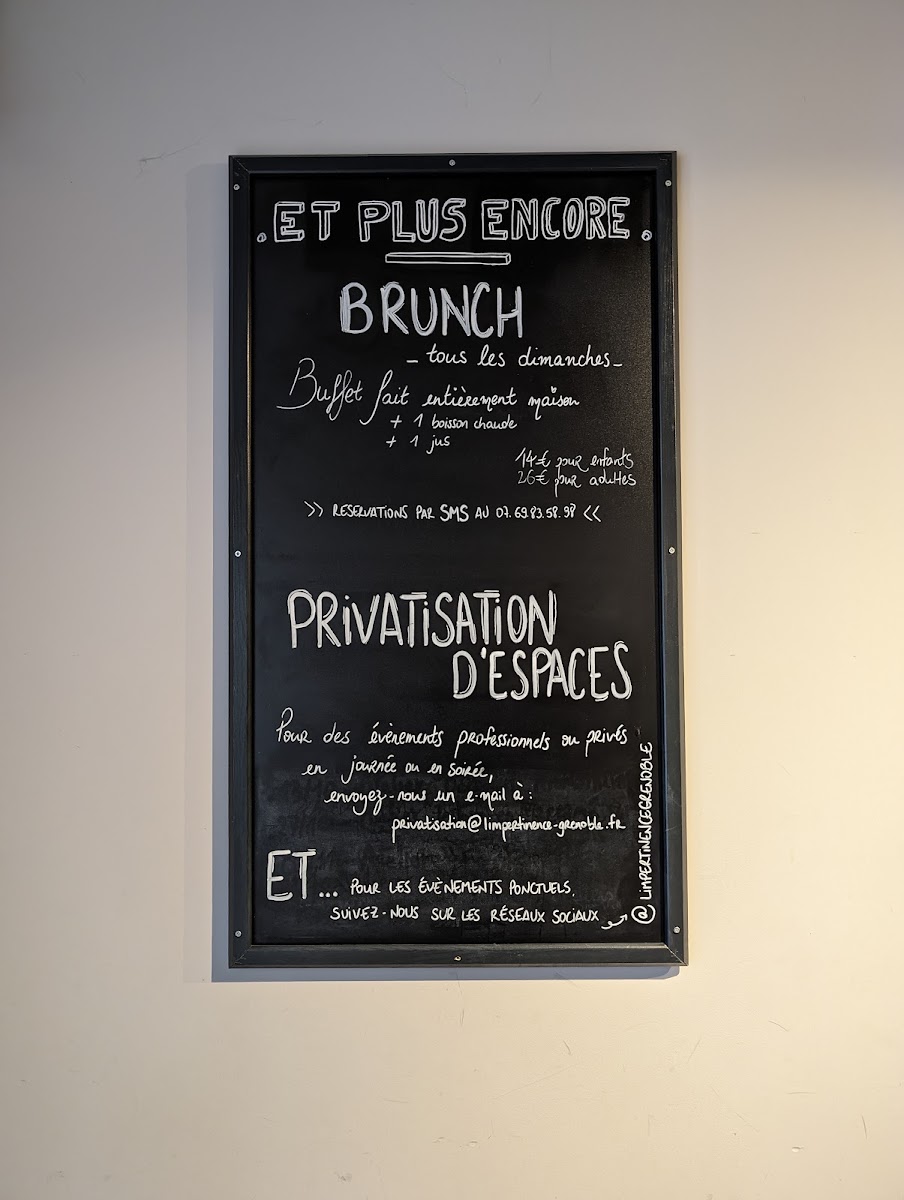 . ET PLUS ENCORE .
BRUNCH
- tous les dimanches -
Buffet fait entièrement maison
+ 1 boisson chaude
+ 1 jus
14€ pour enfants
26€ pour adultes
>> RESERVATIONS PAR SMS AU 07.69.83.58.98 <<
PRIVATISATION
D'ESPACES
Pour des évènements professionnels ou privés
en journée ou en soirée,
envoyez-nous un e-mail à :
privatisation@limpertinence-grenoble.fr
ET... POUR LES ÉVÈNEMENTS PONCTUELS,
SUIVEZ-NOUS SUR LES RÉSEAUX SOCIAUX
@LIMPERTINENCEGRENOBLE